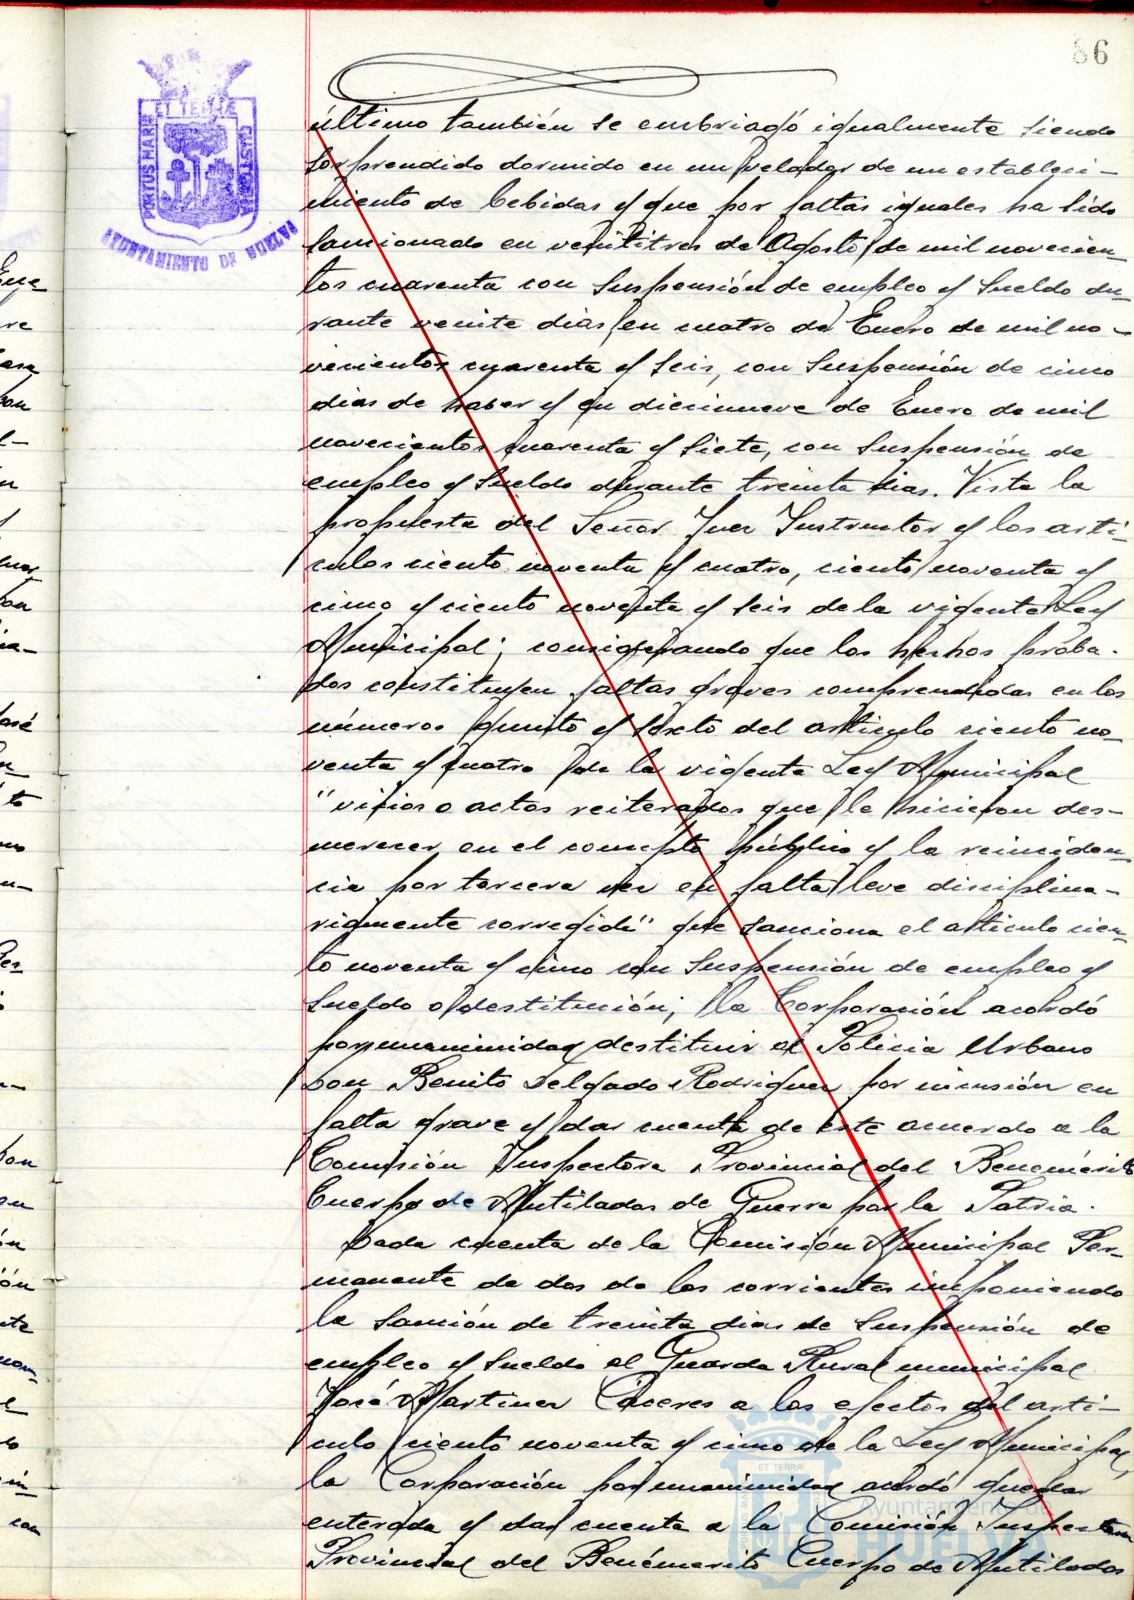 86
PORTUS MARIS ET TERRÆ CUSTODIA
AYUNTAMIENTO DE HUELVA
último también se embriagó igualmente siendo
sorprendido dormido en un velador de un estableci-
miento de bebidas y que por faltas iguales ha sido
sancionado en veintitres de Agosto de mil novecien
tos cuarenta con suspensión de empleo y sueldo du-
rante veinte dias, en cuatro de Enero de mil no-
vecientos cuarenta y seis, con suspensión de cinco
dias de haber y en diecinueve de Enero de mil
novecientos cuarenta y siete, con suspensión de
empleo y sueldo durante treinta dias. Vista la
propuesta del Señor Juez Instructor y los artí-
culos ciento noventa y cuatro, ciento noventa y
cinco y ciento noventa y seis de la vigente Ley
Municipal; considerando que los hechos proba-
dos constituyen faltas graves comprendidas en los
números quinto y sexto del artículo ciento no-
venta y cuatro de la vigente Ley Municipal
"vicios o actos reiterados que le hicieron des-
merecer en el concepto público y la reinciden
cia por tercera vez en falta leve disciplina-
riamente corregida" que sanciona el artículo cien-
to noventa y cinco con suspensión de empleo y
sueldo o destitución; la Corporación acordó
por unanimidad destituir al Policia Urbano
Don Benito Delgado Rodriguez por incusión en
falta grave y dar cuenta de este acuerdo a la
Comisión Inspectora Provincial del Benemérito
Cuerpo de Mutilados de Guerra por la Patria.
Dada cuenta de la Comisión Municipal Per-
manente de dos de los corrientes imponiendo
la sanción de treinta dias de suspensión de
empleo y sueldo al Guarda Rural municipal
José Martinez Cáceres a los efectos del artí-
culo ciento noventa y cinco de la Ley Municipal,
la Corporación por unanimidad acordó quedar
enterada y dar cuenta a la Comisión Inspectora
Provincial del Benémerito Cuerpo de Mutilados
ET TERRÆ
Ayuntamiento de
HUELVA